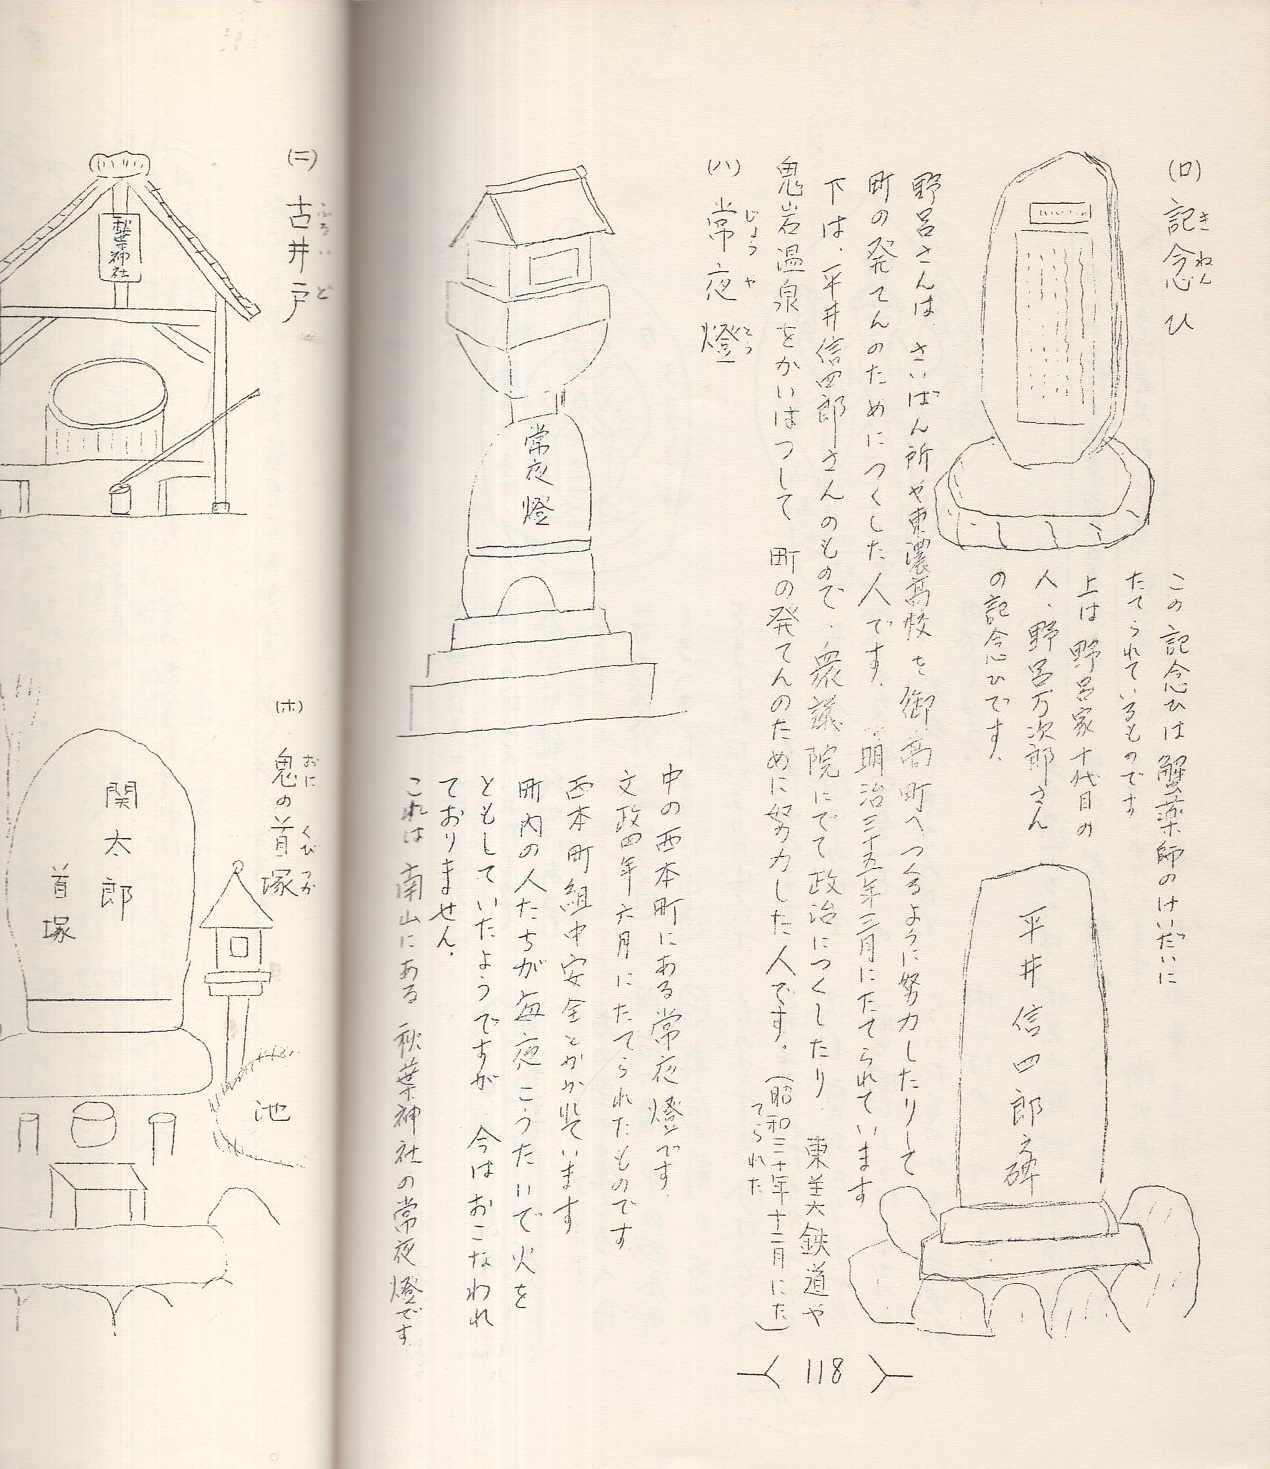 (ロ) 記念ひ
きねん
この記念ひは蟹薬師のけいだいに
たてられているものです
上は野呂家十代目の
人、野呂万次郎さん
の記念ひです。
平井信四郎之碑
野呂さんは さいばん所や東濃高校を御嵩町へつくるように努力したりして
町の発てんのためにつくした人です。明治三十五年三月にたてられています
下は、平井信四郎さんのもので、衆議院にでて政治につくしたり 東美鉄道や
鬼岩温泉をかいはつして 町の発てんのために努力した人です。(昭和三十年十二月にた
てられた)
(ハ) 常夜燈
じょうやとう
常夜燈
中の西本町にある常夜燈です
文政四年六月にたてられたものです
西本町組中安全とかかれています
町内の人たちが毎夜こうたいで火を
ともしていたようですが 今はおこなわれ
ておりません。
これは南山にある秋葉神社の常夜燈です
118
(ニ) 古井戸
ふるいど
秋葉神社
(ホ) 鬼の首塚
おに くびつか
関太郎
首塚
池